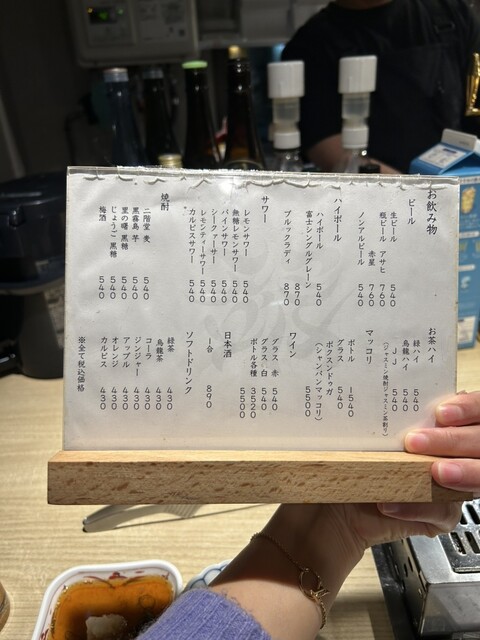 お飲み物
ビール
生ビール 540
瓶ビール アサヒ 760
赤星 760
ノンアルビール 540
ハイボール
ハイボール 540
富士シングルグレーン 870
ブルックラディ 870
サワー
レモンサワー 540
無糖レモンサワー 540
パインサワー 540
シークァーサー 540
レモンティーサワー 540
カルピスサワー 540
焼酎
二階堂 麦 540
黒霧島 芋 540
里の曙 黒糖 540
じょうご 黒糖 540
梅酒 540
お茶ハイ
緑ハイ 540
烏龍ハイ 540
JJ 540
(ジャスミン焼酎ジャスミン茶割り)
マッコリ
ボトル 1540
グラス 540
ボクスンドゥガ
(シャンパンマッコリ) 5500
ワイン
グラス 赤 540
グラス 白 540
ボトル各種 3520
5500
日本酒
一合 890
ソフトドリンク
緑茶 430
烏龍茶 430
コーラ 430
ジンジャー 430
アップル 430
オレンジ 430
カルピス 430
※全て税込価格